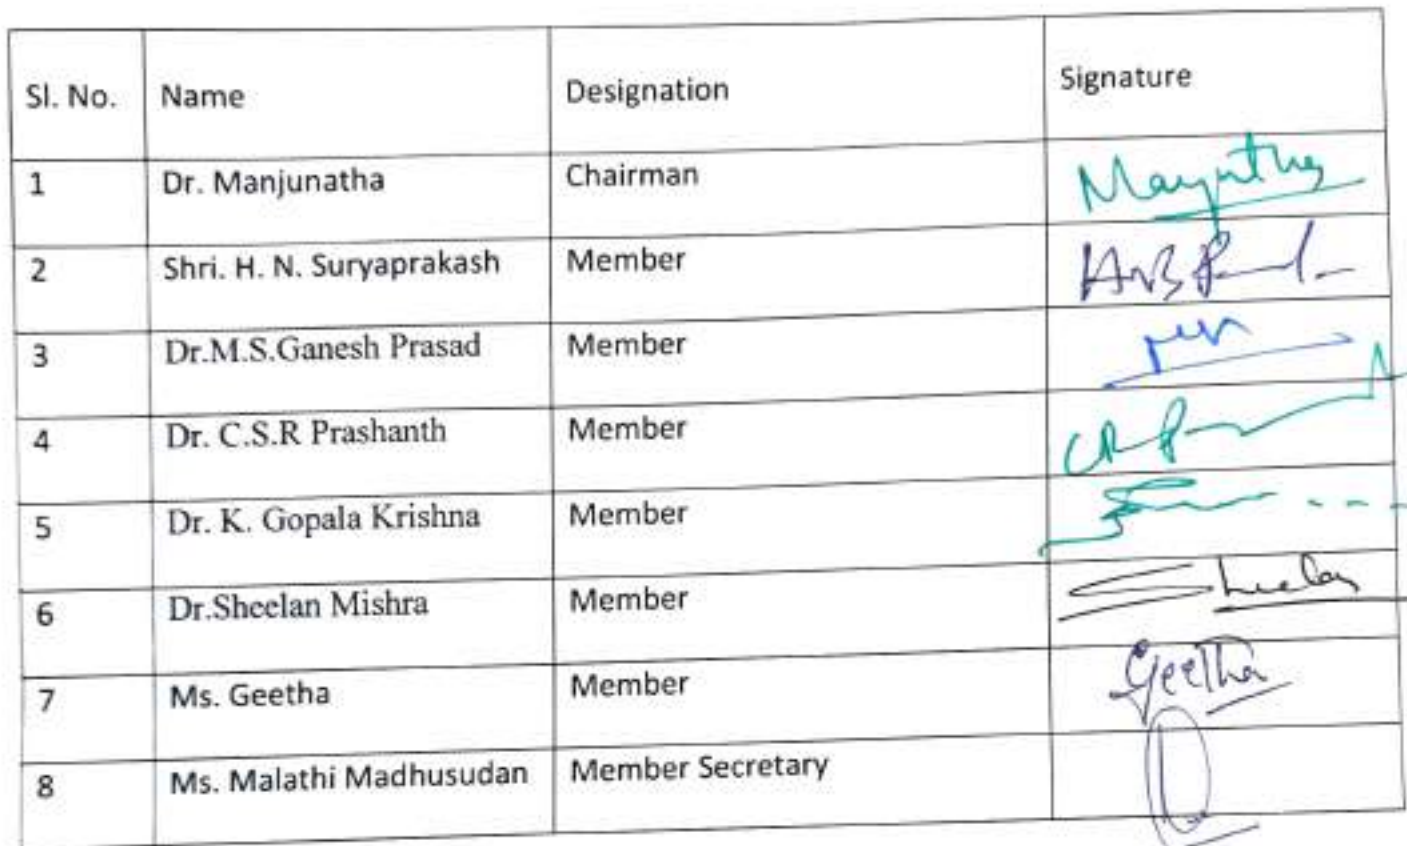 Sl. No. Name Designation Signature
1 Dr. Manjunatha Chairman
2 Shri. H. N. Suryaprakash Member
3 Dr.M.S.Ganesh Prasad Member
4 Dr. C.S.R Prashanth Member
5 Dr. K. Gopala Krishna Member
6 Dr.Sheelan Mishra Member Sheelan
7 Ms. Geetha Member Geetha
8 Ms. Malathi Madhusudan Member Secretary